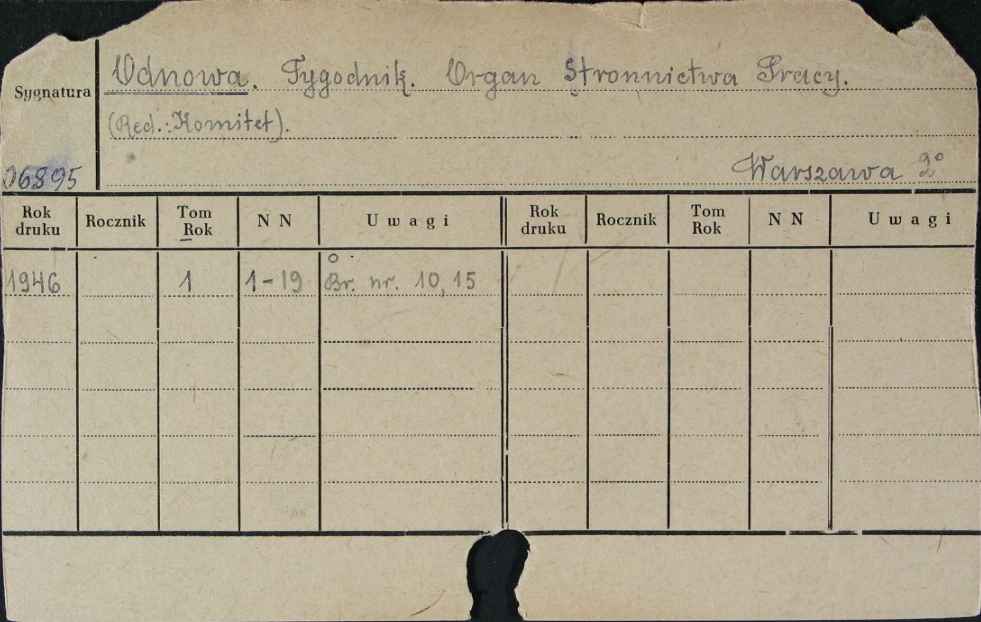 Odnowa. Tygodnik. Organ Stronnictwa Pracy.
Sygnatura
(Red.: Komitet).
06895
Warszawa 2°
Rok druku Rocznik Tom Rok N N Uwagi Rok druku Rocznik Tom Rok N N Uwagi
1946 1 1-19 Br. nr. 10, 15